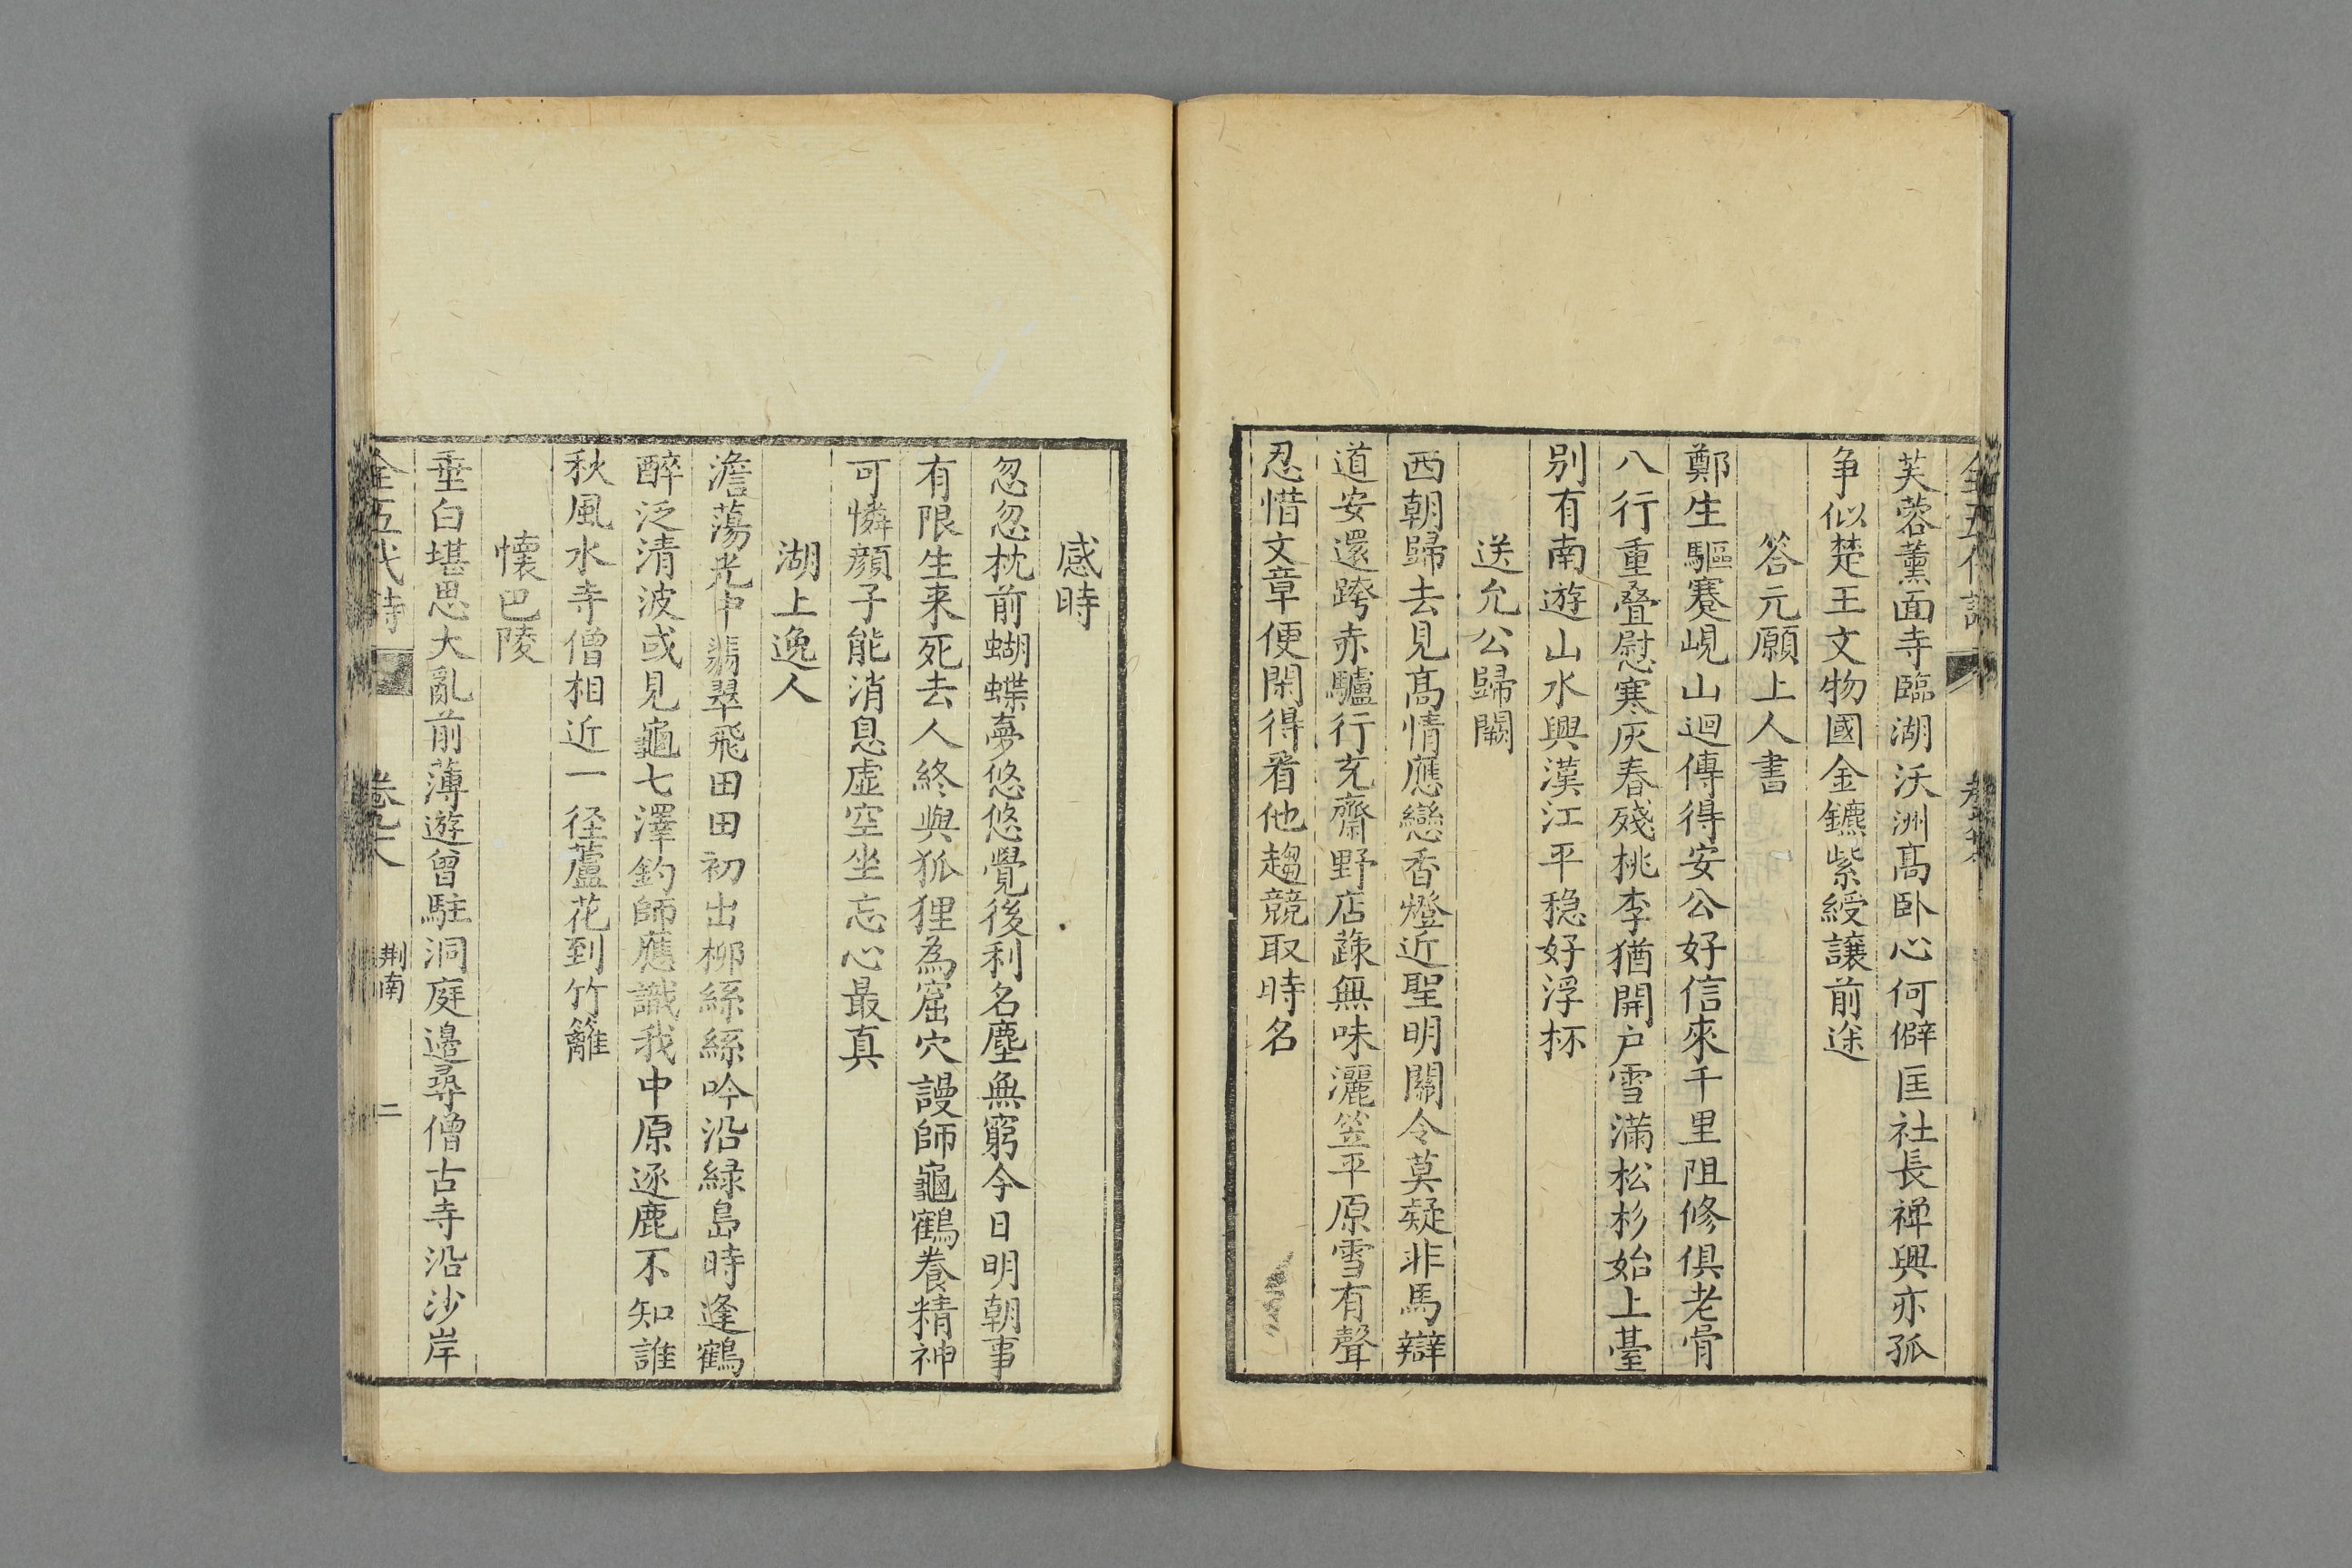 芙蓉薰面寺臨湖沃洲髙卧心何僻匡社長禅興亦孤
争似楚王文物國金鑣紫綬讓前途
答元願上人書
鄭生驅蹇峴山迴傳得安公好信來千里阻修俱老骨
八行重叠慰寒灰春殘桃李猶開户雪滿松杉始上臺
别有南遊山水興漢江平穏好浮杯
送允公歸闕
西朝歸去見髙情應戀香燈近聖明關令莫疑非馬辯
道安還跨赤驢行充齋野店蔬無味灑笠平原雪有聲
忍惜文章便閑得看他趨競取時名
感時
忽忽枕前蝴蝶夢悠悠覺後利名塵無窮今日明朝事
有限生来死去人終與狐狸為窟穴謾師龜鶴養精神
可憐顔子能消息虚空坐忘心最真
湖上逸人
澹蕩光中翡翠飛田田初出柳絲絲吟沿緑島時逢鶴
醉泛清波或見龜七澤釣師應識我中原逐鹿不知誰
秋風水寺僧相近一径蘆花到竹籬
懷巴陵
垂白堪思大亂前薄遊曾駐洞庭邉尋僧古寺沿沙岸
全五代詩
荆南
二